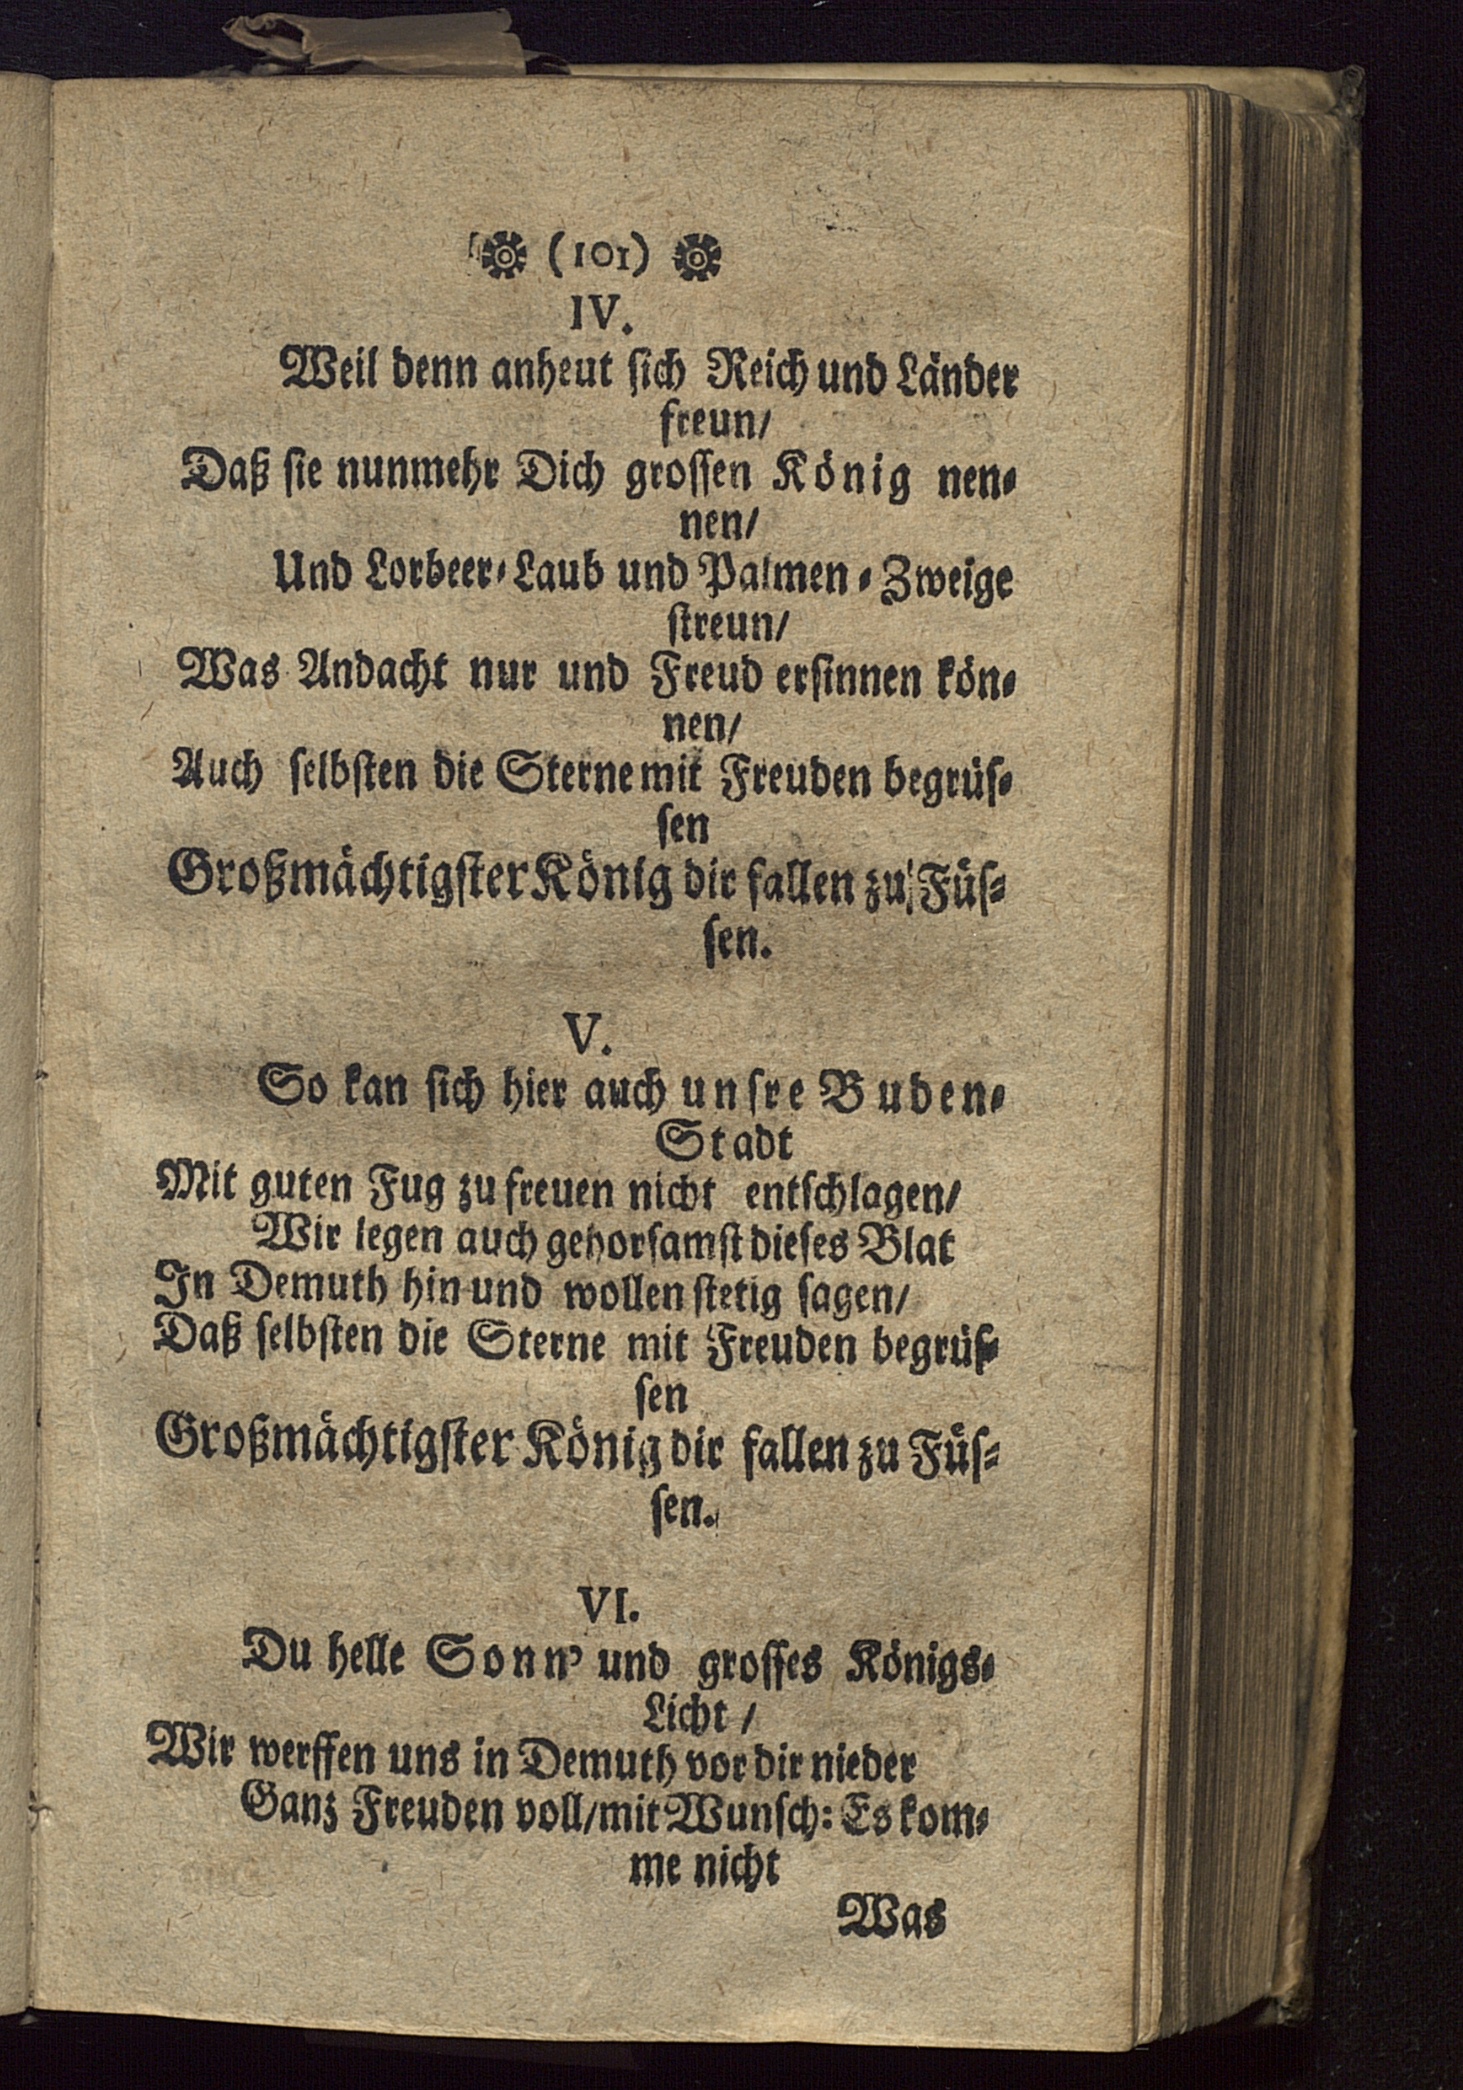 (101)
IV.
Weil denn anheut sich Reich und Länder
freun/
Daß sie nunmehr Dich grossen König nen-
nen/
Und Lorbeer-Laub und Palmen-Zweige
streun/
Was Andacht nur und Freud ersinnen kön-
nen/
Auch selbsten die Sterne mit Freuden begrüs-
sen
Großmächtigster König dir fallen zu Füs-
sen.
V.
So kan sich hier auch unsre Buden-
Stadt
Mit guten Fug zu freuen nicht entschlagen/
Wir legen auch gehorsamst dieses Blat
In Demuth hin und wollen stetig sagen/
Daß selbsten die Sterne mit Freuden begrüs-
sen
Großmächtigster König dir fallen zu Füs-
sen.
VI.
Du helle Sonn' und grosses Königs-
Licht /
Wir werffen uns in Demuth vor dir nieder
Ganz Freuden voll/mit Wunsch: Es kom-
me nicht
Was